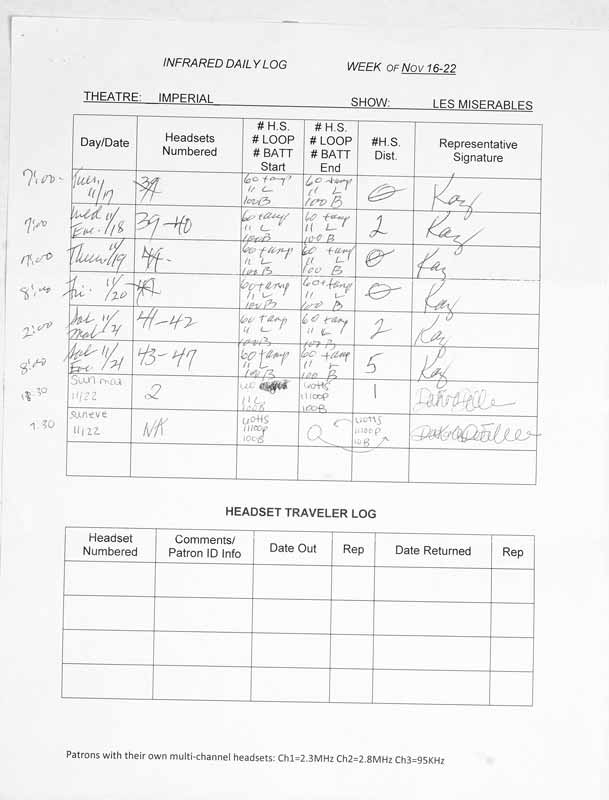 INFRARED DAILY LOG WEEK OF NOV 16-22
THEATRE: IMPERIAL SHOW: LES MISERABLES
Day/Date Headsets Numbered # H.S. # LOOP # BATT Start # H.S. # LOOP # BATT End #H.S. Dist. Representative Signature
7:00- Tues 11/17 39 60 + amp 11 L 100B 60 + amp 11 L 100 B 0 Kay
7:00 Wed 11/18 Eve. 39-40 60 + amp 11 L 100B 60 + amp 11 L 100 B 2 Kay
Thurs 11/19 60 + amp 11 L 100 B 60 + amp 11 L 100 B 0 Kay
8:00 Fri. 11/20 60 + amp 11 L 100 B 60 + amp 11 L 100 B 0 Kay
2:00 Sat 11/21 Mat 41-42 60 + amp 11 L 100B 60 + amp 11 L 100 B 2 Kay
8:00 Sat 11/21 Eve. 43-47 60 + amp 11 L 100 B 60 + amp 11 L 100 B 5 Kay
Sun mat 11/22 2 11 L 100B 11100P 100B 1
7.30 sun eve 11/22 NA 11100P 100B
HEADSET TRAVELER LOG
Headset Numbered Comments/ Patron ID Info Date Out Rep Date Returned Rep
Patrons with their own multi-channel headsets: Ch1=2.3MHz Ch2=2.8MHz Ch3=95KHz